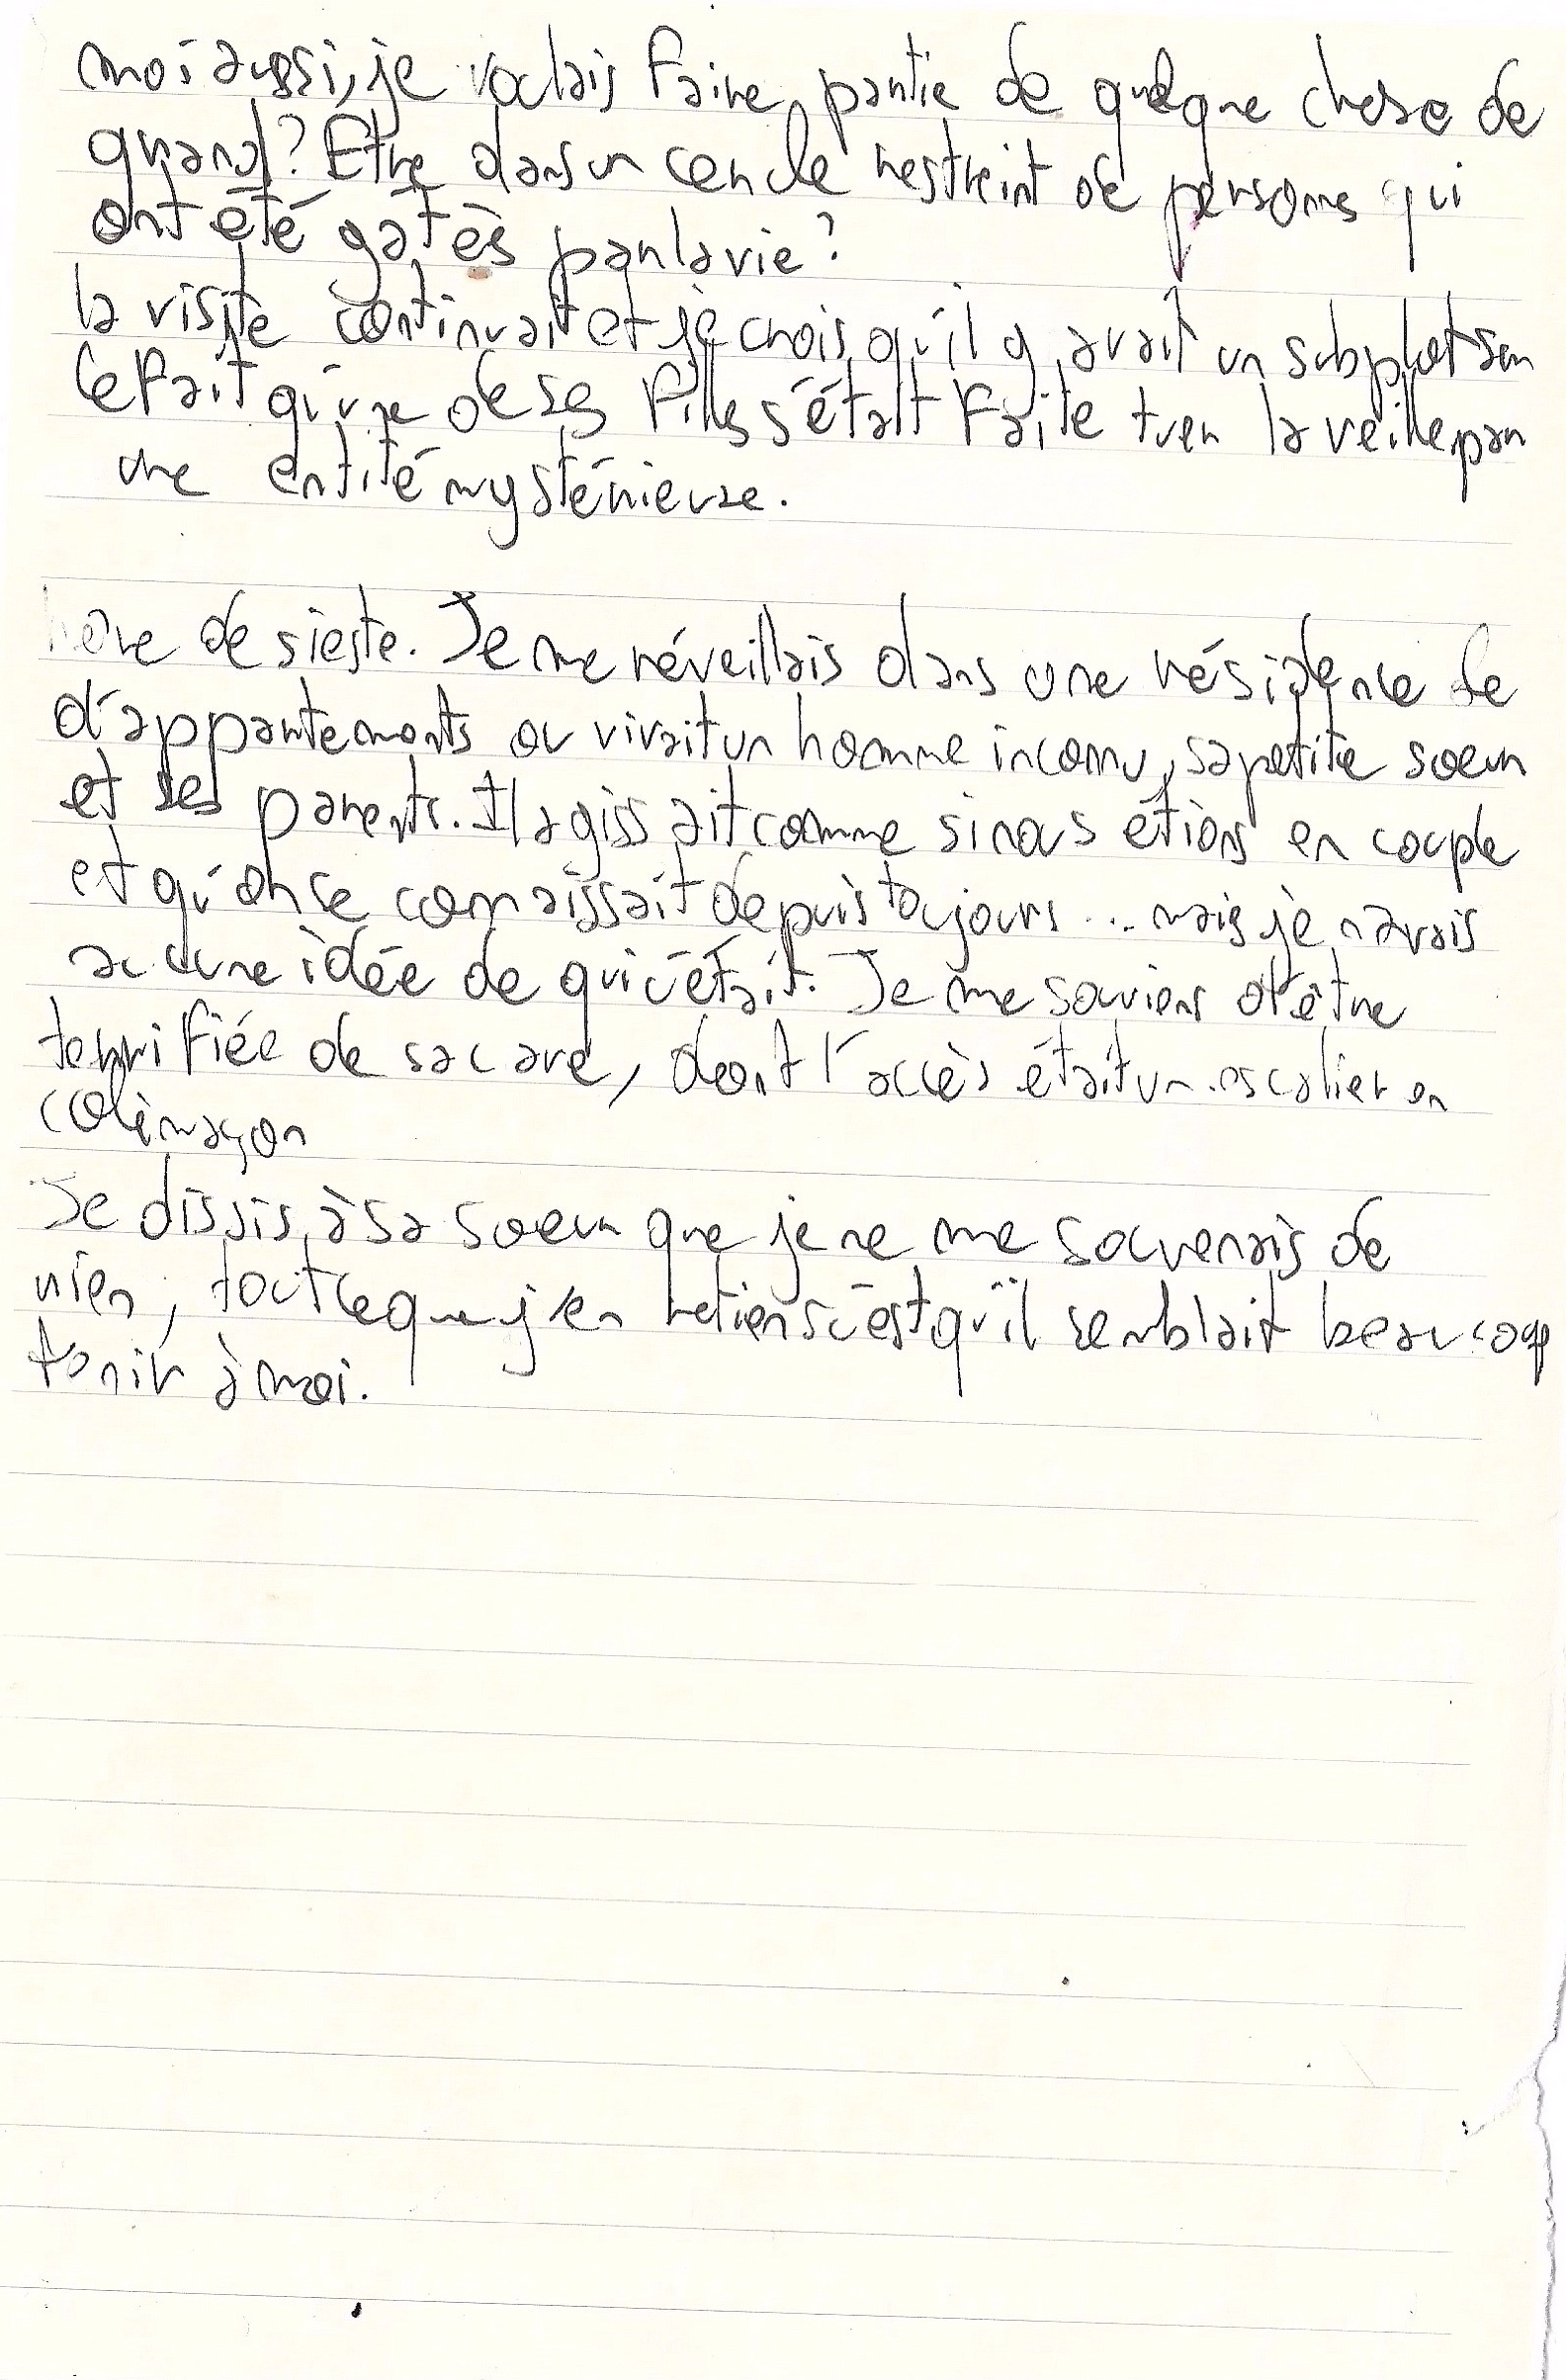 moi aussi, je voulais faire partie de quelque chose de
grand? Etre dans un cercle restreint de personnes qui
ont été gâtés par la vie?
la visite continuait et je crois qu'il y avait un subplot sur
le fait qu'une de ses filles s'était faite tuer la veille par
une entité mystérieuse.
de sieste. Je me réveillais dans une résidence de
d'appartements ou vivait un homme inconnu, sa petite soeur
et ses parents. Il agissait comme si nous étions en couple
et qu'on se connaissait depuis toujours... mais je n'avais
aucune idée de qui c'était. Je me souviens d'être
terrifiée de sa cave, dont l'accès était un escalier en
colimaçon
Je dissis à sa soeur que je ne me souvenais de
rien, tout ce que j'en retiens c'est qu'il semblait beaucoup
tenir à moi.